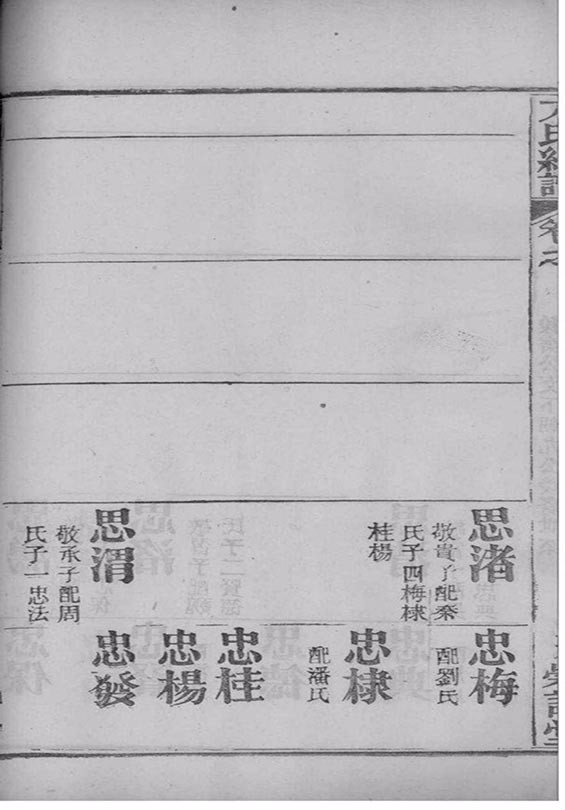 卷之
思渚
敬貴子配秦
氏子四梅棣
桂楊
思渭
敬承子配周
氏子一忠法
忠梅
配劉氏
忠棣
配潘氏
忠桂
忠楊
忠發